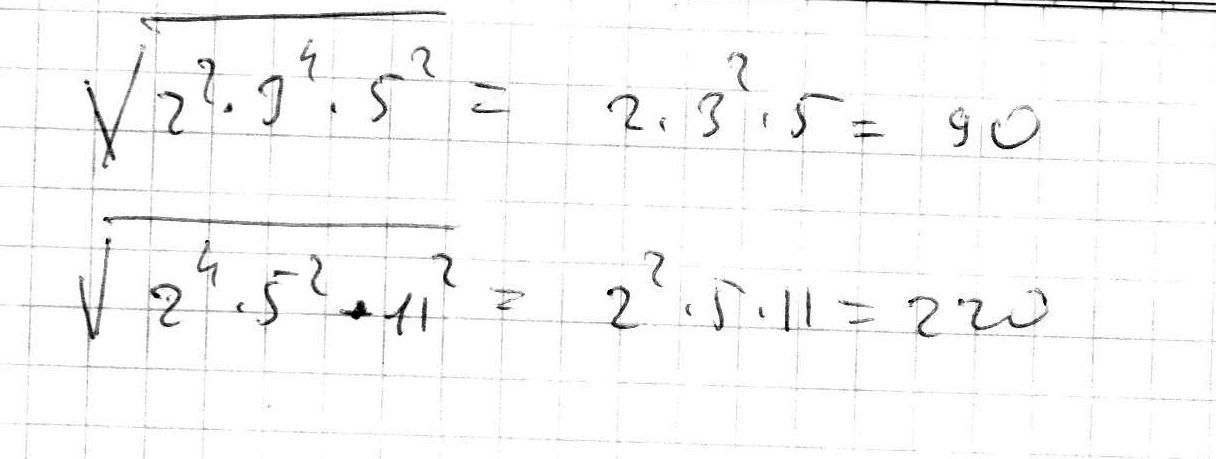 √(2² · 3⁴ · 5²) = 2 · 3² · 5 = 90
√(2⁴ · 5² · 11²) = 2² · 5 · 11 = 220